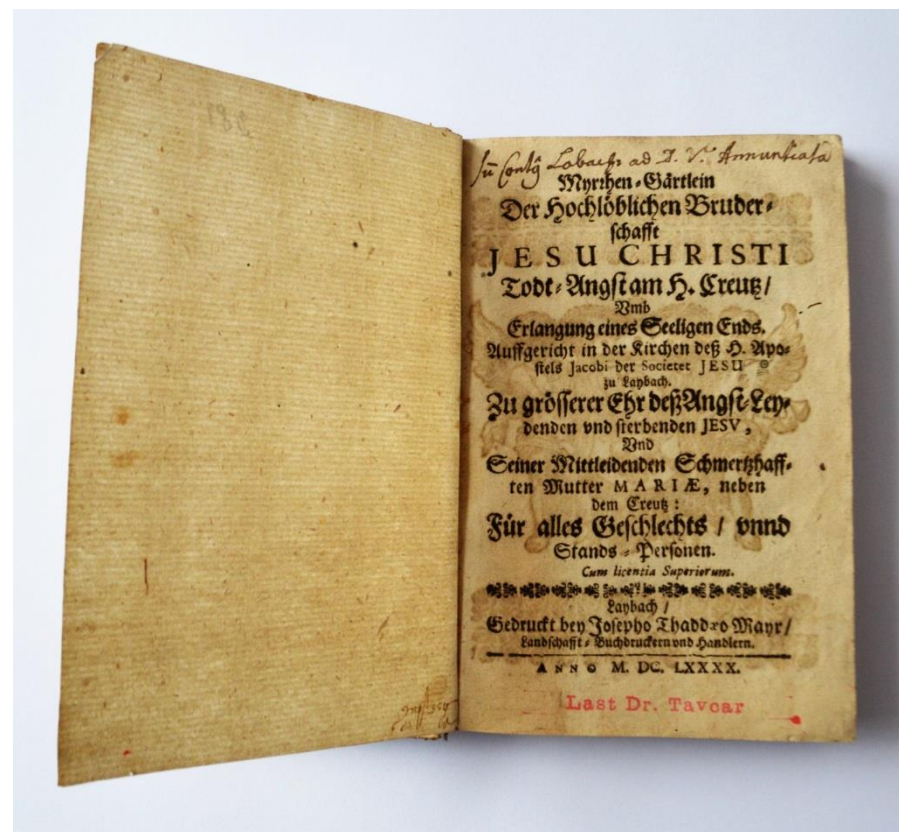 Labach ad Annuntiata
Myrthen-Gärtlein
Der Hochlöblichen Bruder-
schafft
JESU CHRISTI
Todt-Angst am H. Creutz/
Vmb
Erlangung eines Seeligen Ends.
Auffgericht in der Kirchen deß H. Apo-
stels Jacobi der Societet JESU
zu Laybach.
Zu grösserer Ehr deß Angst-Ley-
denden vnd sterbenden JESV,
Vnd
Seiner Mittleidenden Schmertzhaff-
ten Mutter MARIÆ, neben
dem Creutz:
Für alles Geschlechts / vnnd
Stands-Personen.
Cum licentia Superiorum.
Laybach /
Gedruckt bey Josepho Thaddæo Mayr/
Landschafft-Buchdruckern vnd Handlern.
ANNO M. DC. LXXXX.
Last Dr. Tavcar